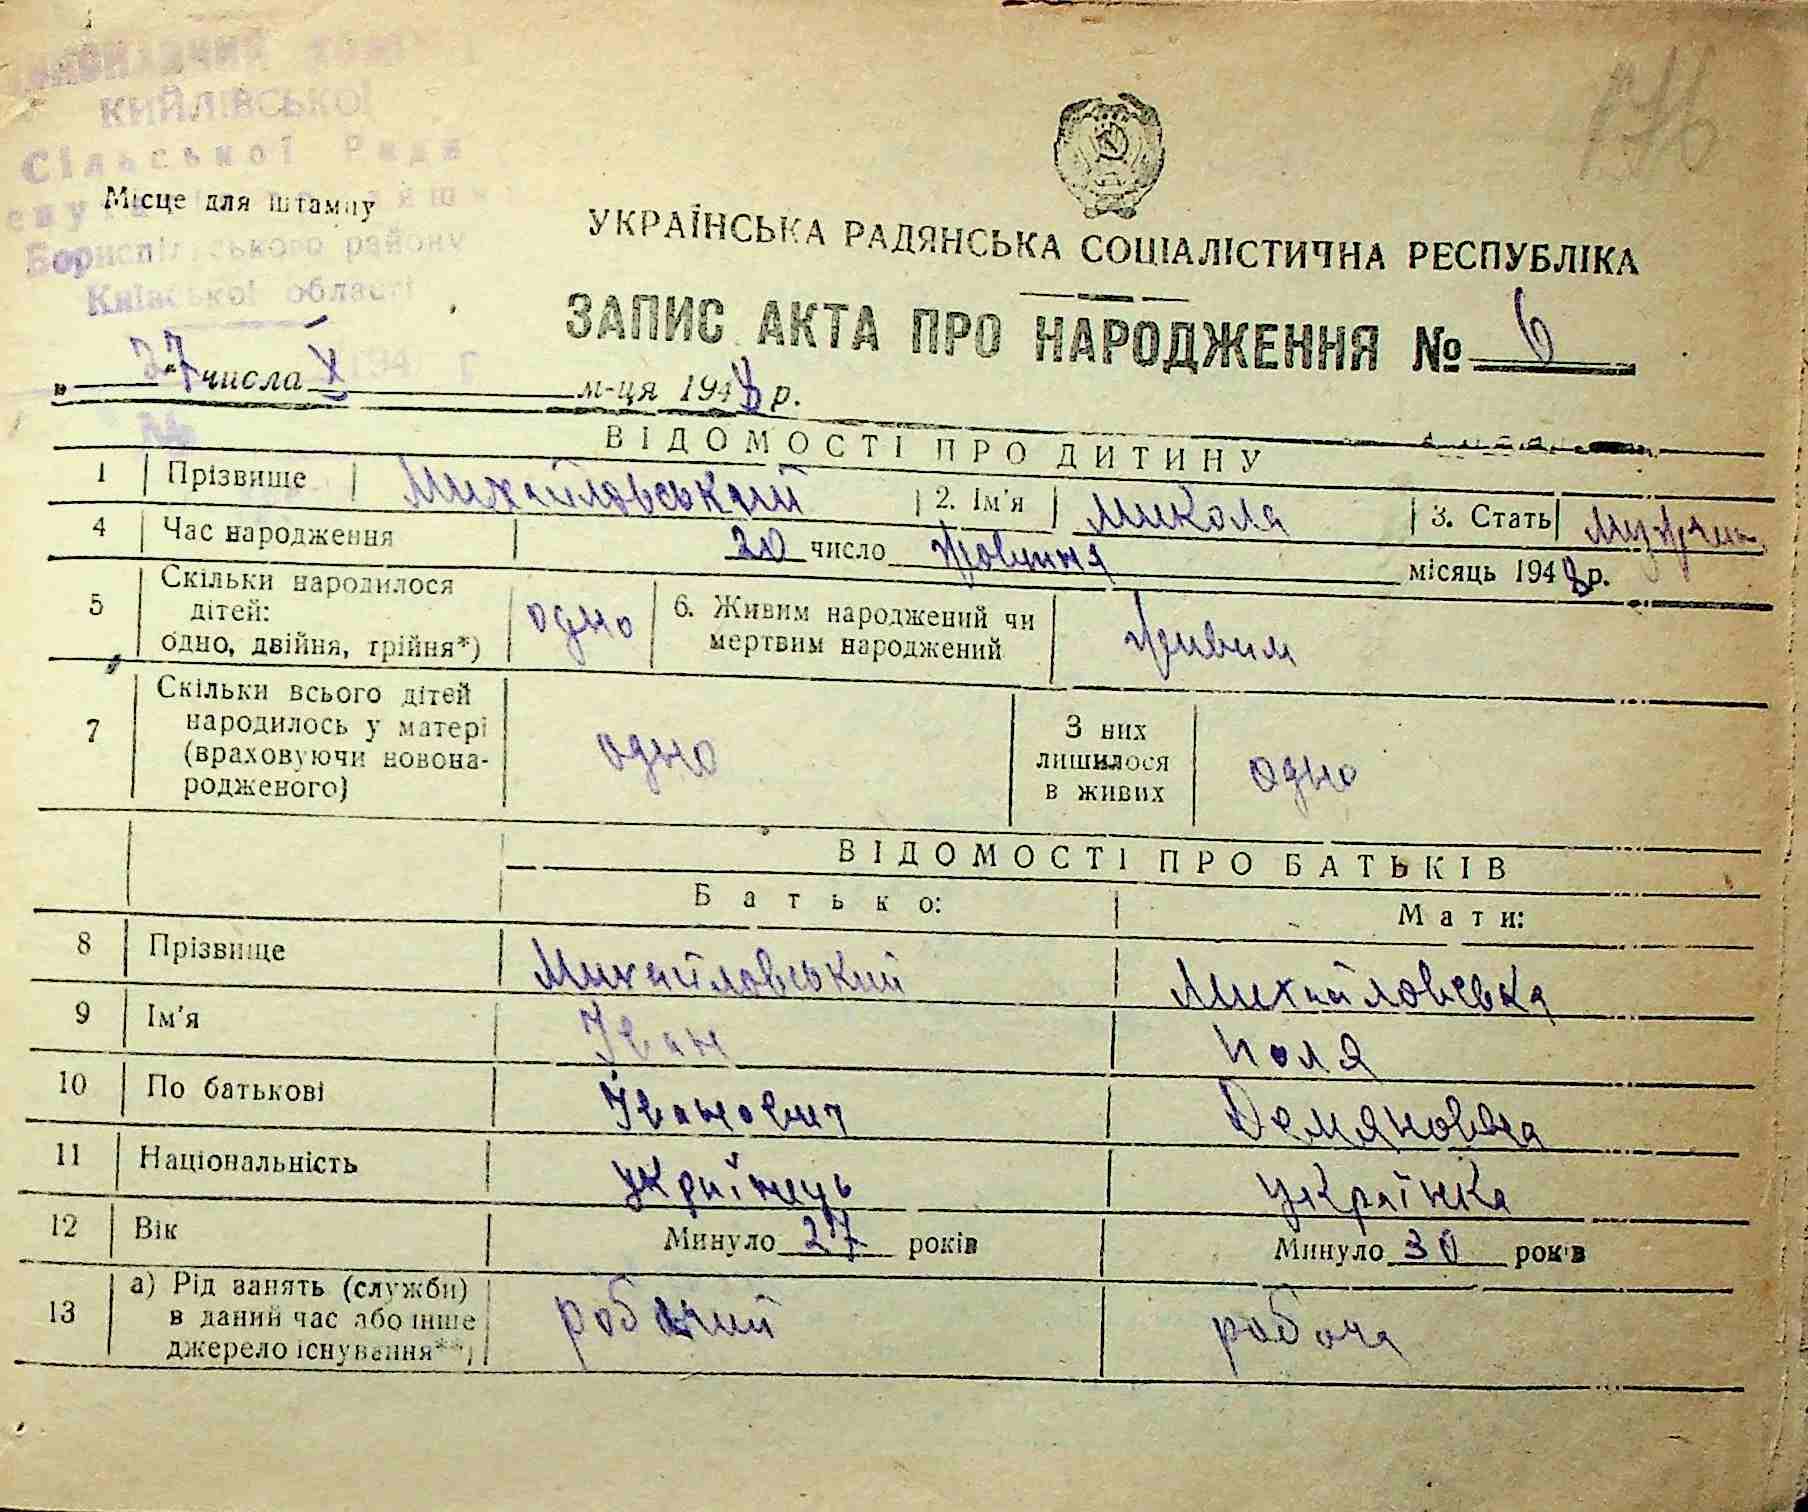 КИЙЛІВСЬКОЇ
Сільської Ради
Місце для штампу
Бориспільського району
Київської області
176
УКРАЇНСЬКА РАДЯНСЬКА СОЦІАЛІСТИЧНА РЕСПУБЛІКА
ЗАПИС АКТА ПРО НАРОДЖЕННЯ № 6
„ 27 числа X м-ця 1948 р.
ВІДОМОСТІ ПРО ДИТИНУ
1 Прізвище Михайловський 2. Ім'я Микола 3. Стать
4 Час народження 20 число жовтня місяць 1948 р.
5 Скільки народилося
дітей:
одно, двійня, трійня*) одно 6. Живим народжений чи
мертвим народжений живим
7 Скільки всього дітей
народилось у матері
(враховуючи новона-
родженого) одно З них
лишилося
в живих одно
ВІДОМОСТІ ПРО БАТЬКІВ
Батько: Мати:
8 Прізвище Михайловський Михайловська
9 Ім'я Іван Поля
10 По батькові Іванович Демяновна
11 Національність українець українка
12 Вік Минуло 27 років Минуло 30 років
13 а) Рід занять (служби)
в даний час або інше
джерело існування**) робочий робоча